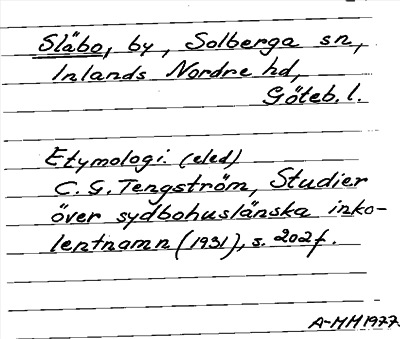 Släbo, by, Solberga sn,
Inlands Nordre hd,
Göteb. l.
Etymologi. (eled)
C. G. Tengström, Studier
över sydbohuslänska inko-
lentnamn (1931), s. 202f.
A-MM1977